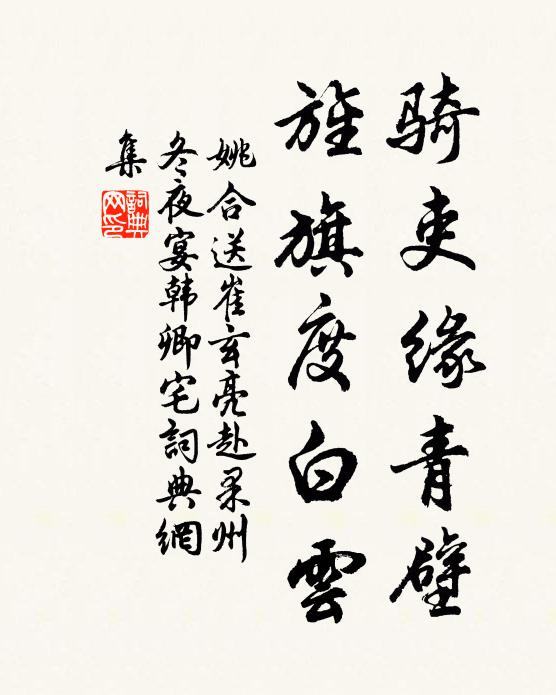 骑吏缘青壁
旌旗度白雲
姚合送崔玄亮赴果州
冬夜宴韩卿宅詞典網
集
詞典網印